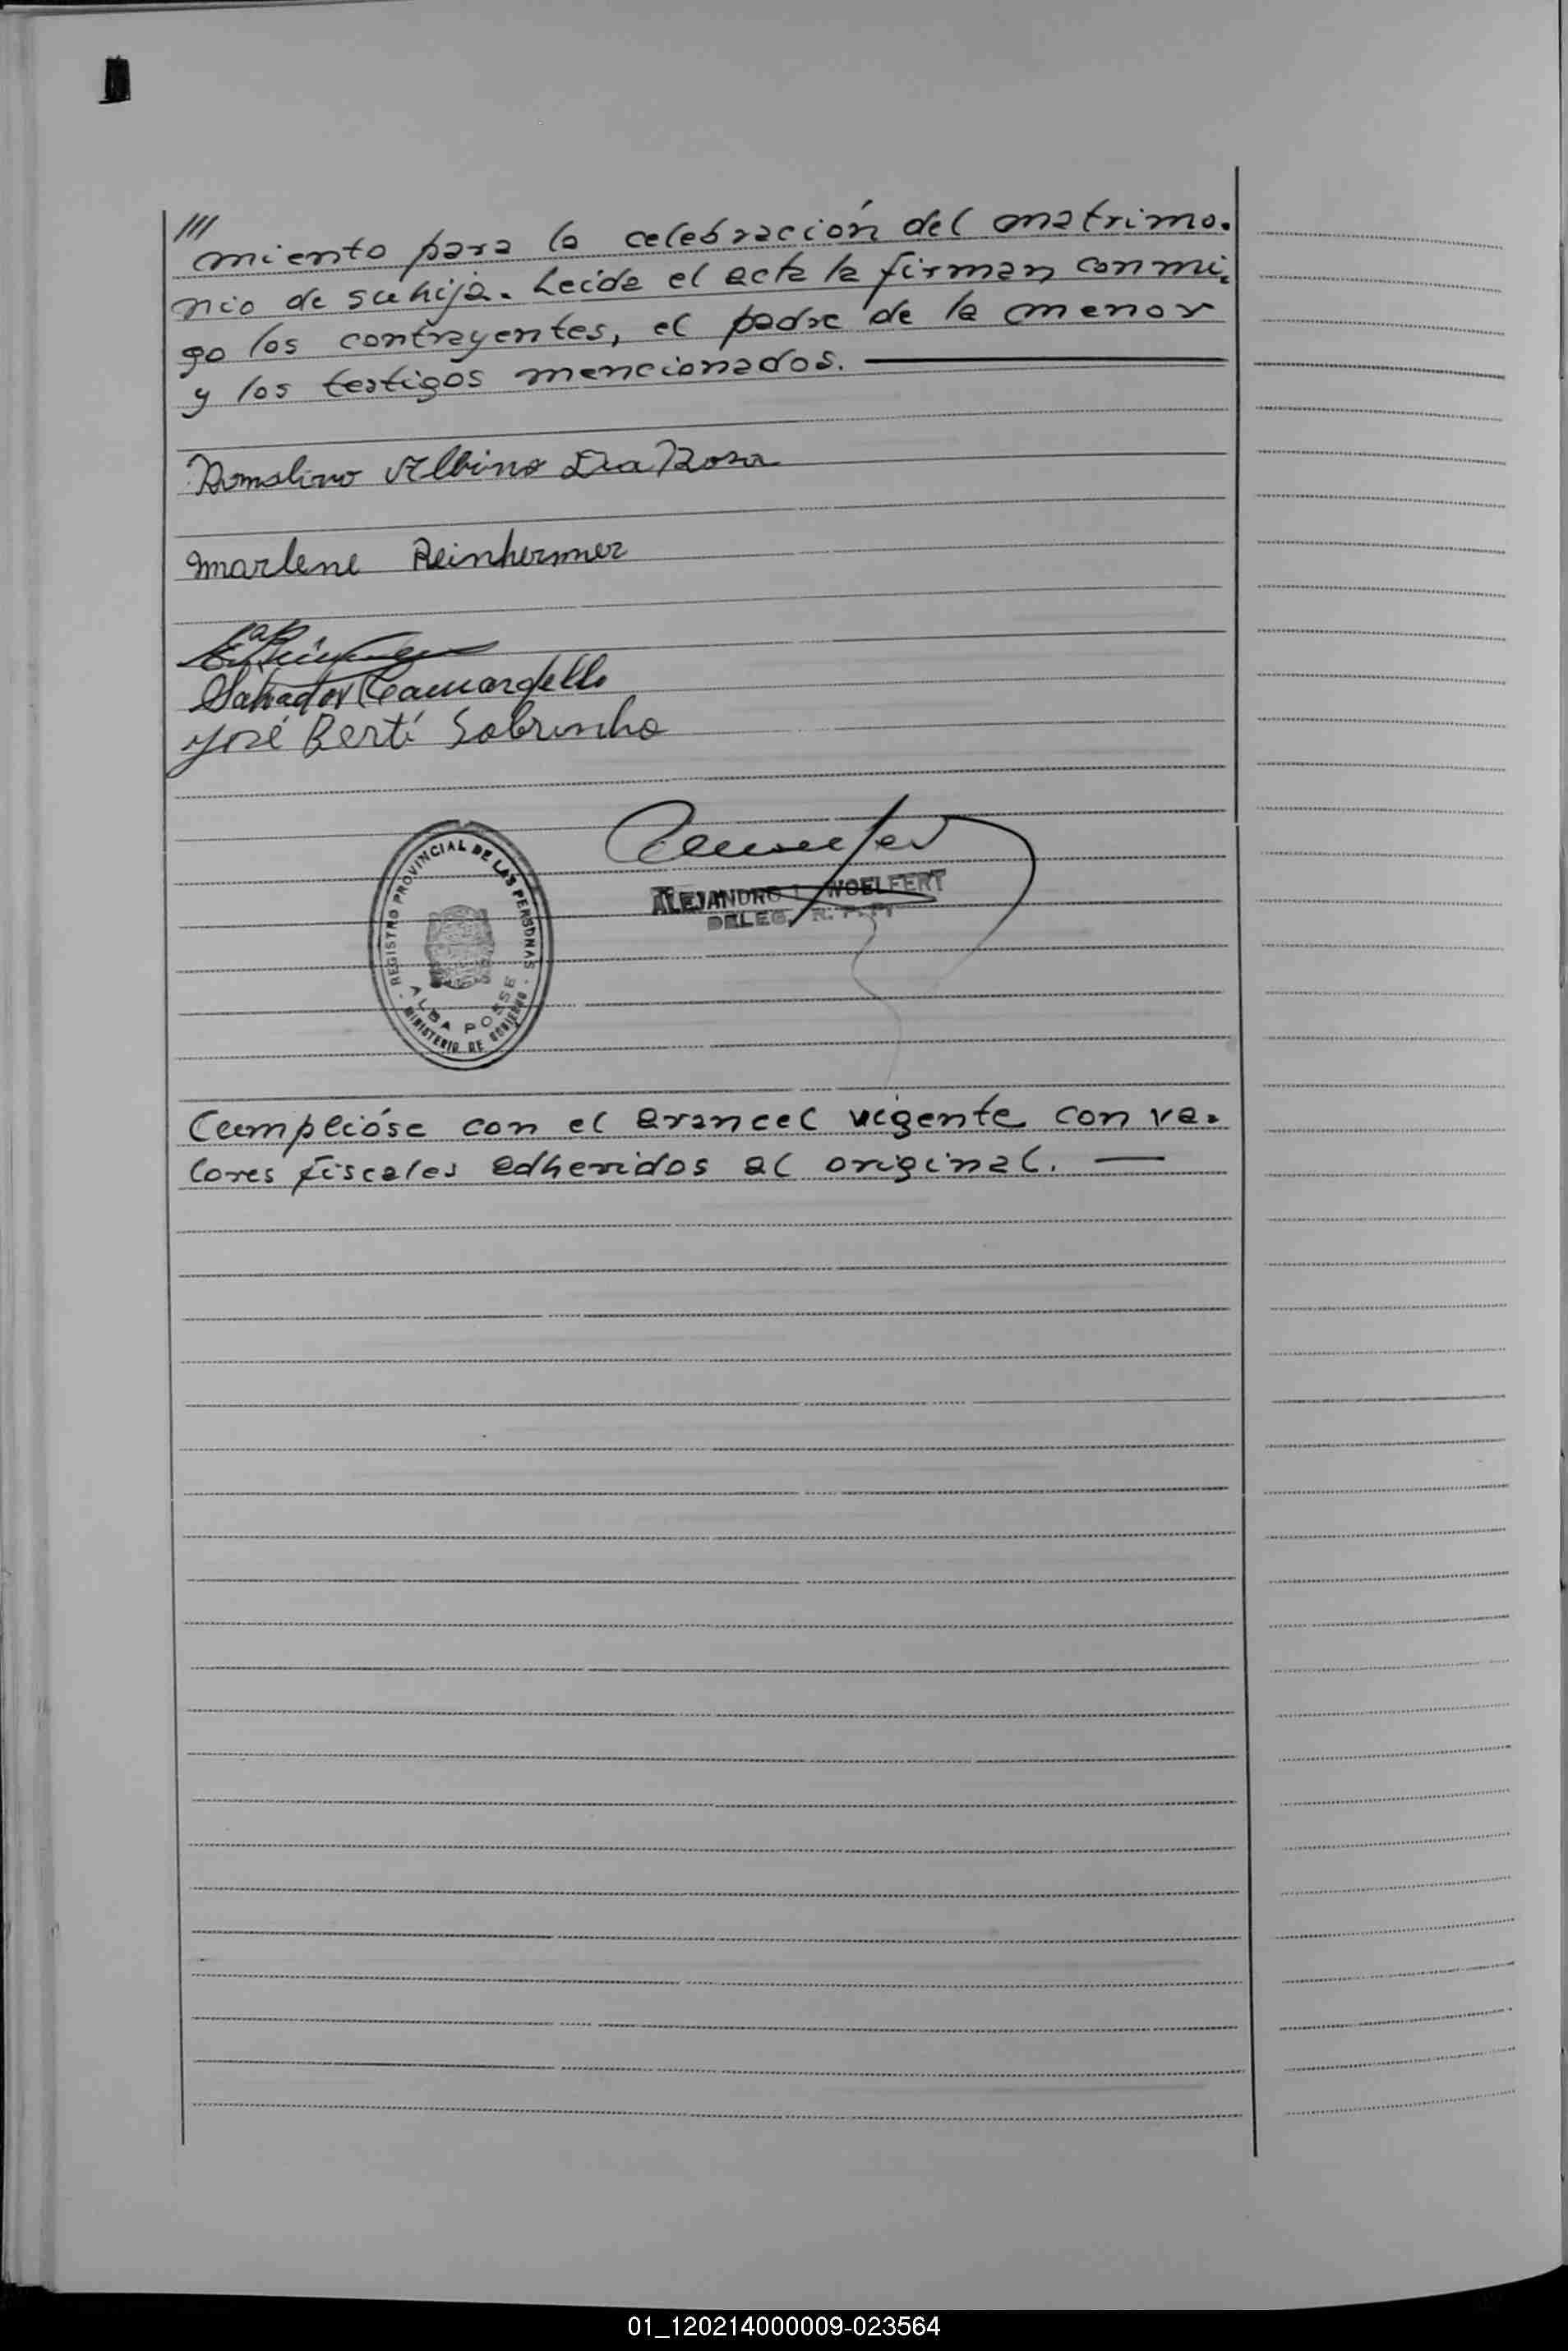 ///
miento para la celebración del matrimo-
nio de su hija. Leída el acta la firman conmi-
go los contrayentes, el padre de la menor
y los testigos mencionados.
Romalino Albino Da Rosa
Marlene Reinhermer
Salvador Camargello
José Berti Sobrinho
REGISTRO PROVINCIAL DE LAS PERSONAS
ALBA POSSE
MINISTERIO DE GOBIERNO
ALEJANDRO WOELFERT
DELEG. R. P. P.
Cumplióse con el arancel vigente con va-
lores fiscales adheridos al original.
01_120214000009-023564